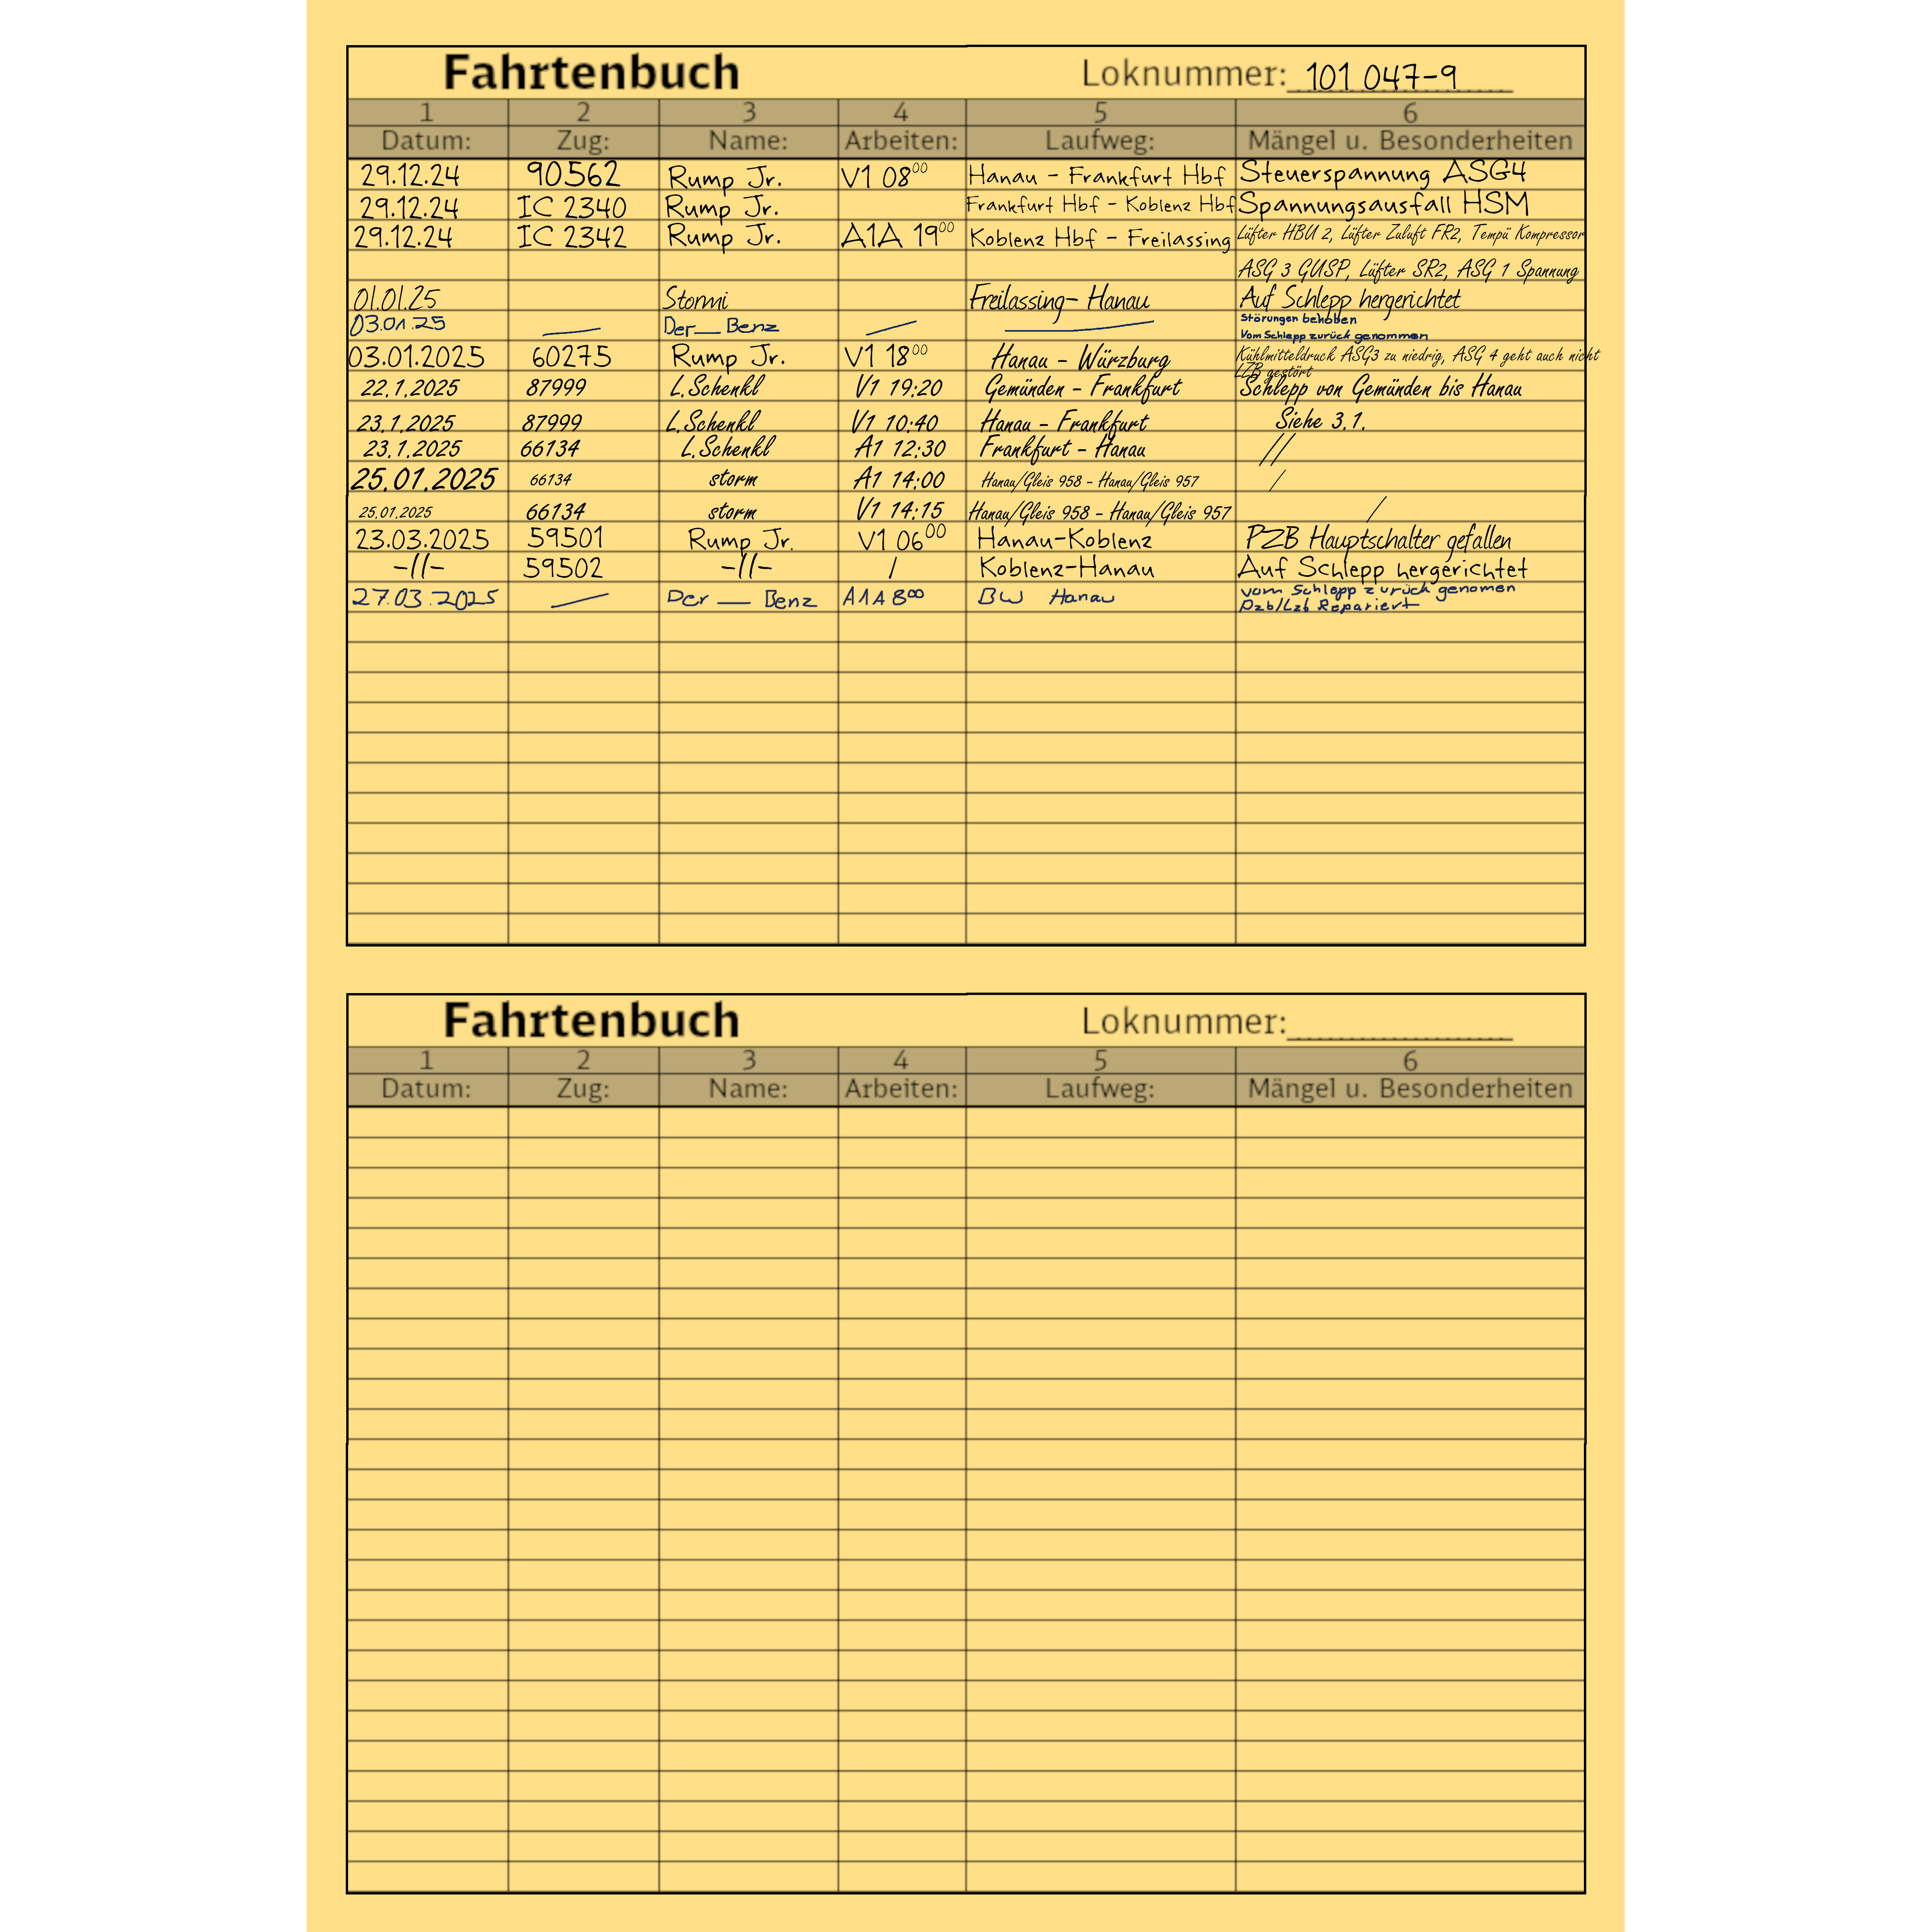 Fahrtenbuch Loknummer: 101 047-9
1 2 3 4 5 6
Datum: Zug: Name: Arbeiten: Laufweg: Mängel u. Besonderheiten
29.12.24 90562 Rump Jr. V1 08⁰⁰ Hanau - Frankfurt Hbf Steuerspannung ASG4
29.12.24 IC 2340 Rump Jr. Frankfurt Hbf - Koblenz Hbf Spannungsausfall HSM
29.12.24 IC 2342 Rump Jr. A1A 19⁰⁰ Koblenz Hbf - Freilassing Lüfter HBU 2, Lüfter Zuluft FR2, Tempü Kompressor
ASG 3 GUSP, Lüfter SR2, ASG 1 Spannung
01.01.25 Stormi Freilassing- Hanau Auf Schlepp hergerichtet
03.01.25 — Der__Benz — — Störungen behoben
Vom Schlepp zurück genommen
03.01.2025 60275 Rump Jr. V1 18⁰⁰ Hanau - Würzburg Kühlmitteldruck ASG3 zu niedrig, ASG 4 geht auch nicht
LZB gestört
22.1.2025 87999 L.Schenkl V1 19:20 Gemünden - Frankfurt Schlepp von Gemünden bis Hanau
23.1.2025 87999 L.Schenkl V1 10:40 Hanau - Frankfurt Siehe 3.1.
23.1.2025 66134 L.Schenkl A1 12:30 Frankfurt - Hanau //
25.01.2025 66134 storm A1 14:00 Hanau/Gleis 958 - Hanau/Gleis 957 /
25.01.2025 66134 storm V1 14:15 Hanau/Gleis 958 - Hanau/Gleis 957 /
23.03.2025 59501 Rump Jr. V1 06⁰⁰ Hanau-Koblenz PZB Hauptschalter gefallen
-//- 59502 -//- / Koblenz-Hanau Auf Schlepp hergerichtet
27.03.2025 — Der __ Benz A1A 8⁰⁰ BW Hanau vom Schlepp zurück genomen
Pzb/Lzb Repariert
Fahrtenbuch Loknummer:
1 2 3 4 5 6
Datum: Zug: Name: Arbeiten: Laufweg: Mängel u. Besonderheiten